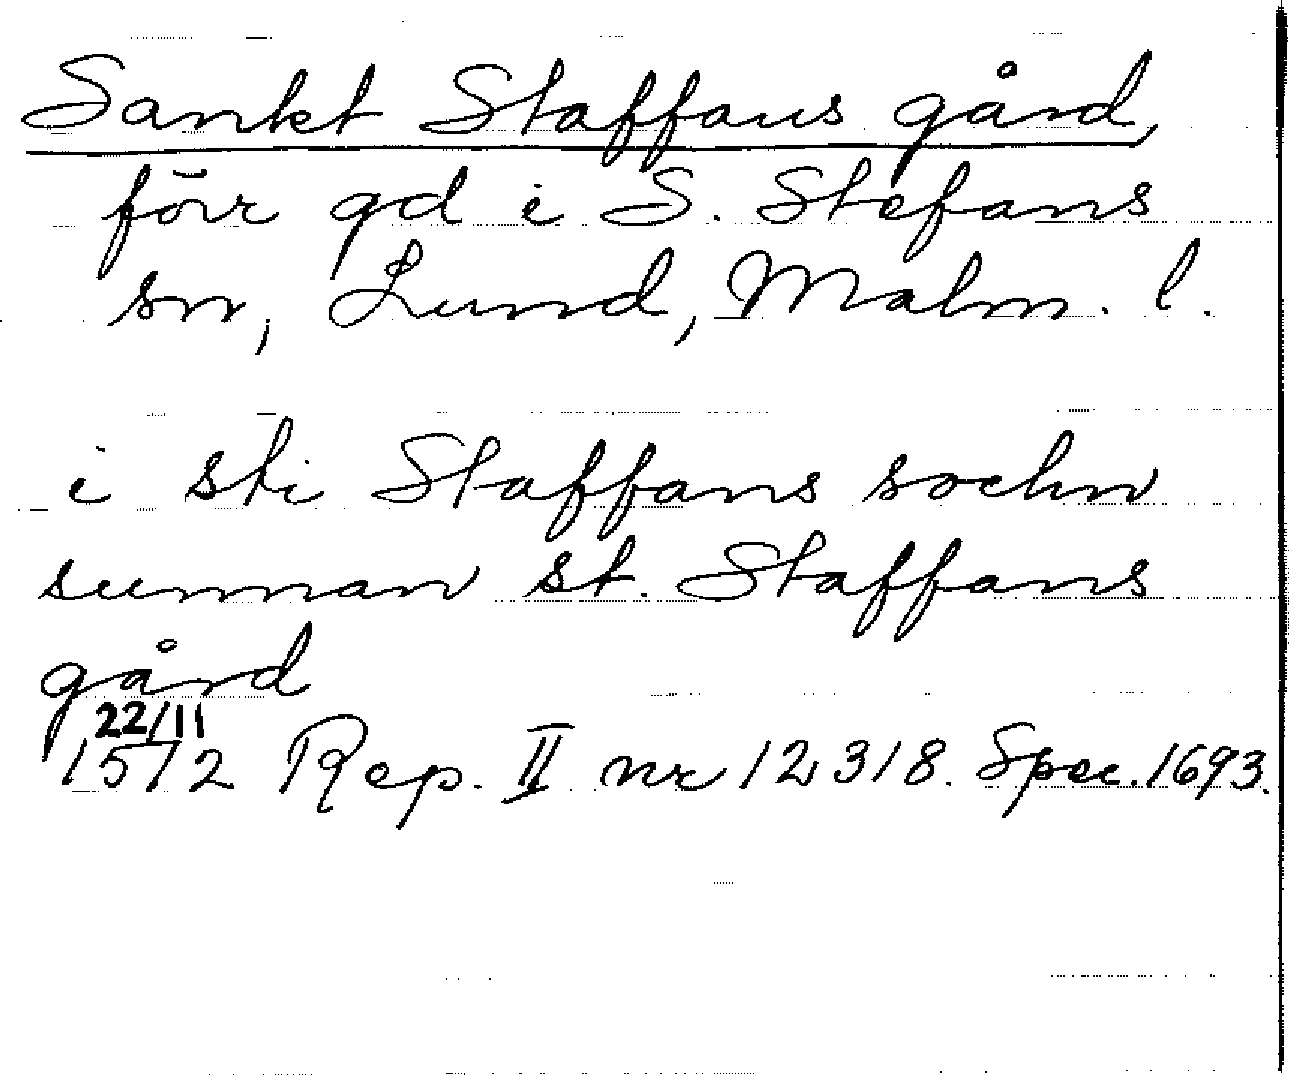 Sankt Staffans gård,
förr gd i S. Stefans
sn, Lund, Malm. l.
i sti Staffans sochn
sunnan st. Staffans
gård
22/11
1572 Rep. II nr 12318. Spec. 1693.